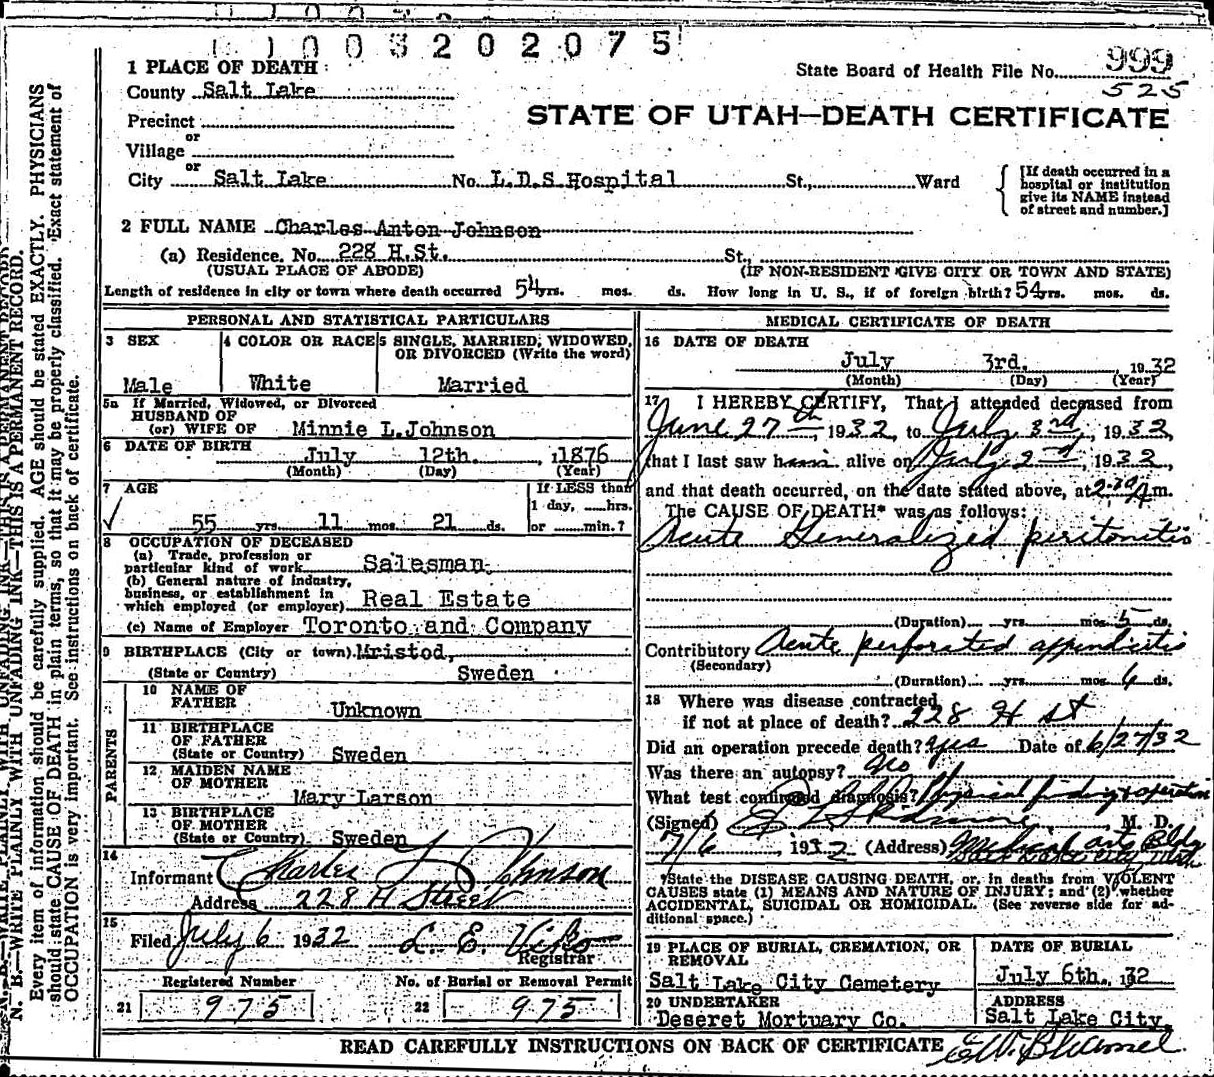 1003202075
1 PLACE OF DEATH
State Board of Health File No. 999
525
County Salt Lake
STATE OF UTAH—DEATH CERTIFICATE
Precinct
or
Village
or
City Salt Lake No. L.D.S Hospital St., Ward
[If death occurred in a hospital or institution give its NAME instead of street and number.]
2 FULL NAME Charles Anton Johnson
(a) Residence. No. 228 H.St. St.,
(USUAL PLACE OF ABODE) (IF NON-RESIDENT GIVE CITY OR TOWN AND STATE)
Length of residence in city or town where death occurred 54 yrs. mos. ds. How long in U. S., if of foreign birth? 54 yrs. mos. ds.
PERSONAL AND STATISTICAL PARTICULARS
3 SEX 4 COLOR OR RACE 5 SINGLE, MARRIED, WIDOWED,
OR DIVORCED (Write the word)
Male White Married
5a If Married, Widowed, or Divorced
HUSBAND OF
(or) WIFE OF Minnie L.Johnson
6 DATE OF BIRTH July 12th. 1876
(Month) (Day) (Year)
7 AGE If LESS than
1 day, hrs.
55 yrs. 11 mos. 21 ds. or min.?
8 OCCUPATION OF DECEASED
(a) Trade, profession or
particular kind of work Salesman
(b) General nature of industry,
business, or establishment in
which employed (or employer) Real Estate
(c) Name of Employer Toronto and Company
9 BIRTHPLACE (City or town) Mristod,
(State or Country) Sweden
PARENTS
10 NAME OF
FATHER Unknown
11 BIRTHPLACE
OF FATHER
(State or Country) Sweden
12 MAIDEN NAME
OF MOTHER Mary Larson
13 BIRTHPLACE
OF MOTHER
(State or Country) Sweden
14
Informant Charles L Johnson
Address 228 H Street
15
Filed July 6 1932 L. E. Viko
Registrar
Registered Number No. of Burial or Removal Permit
21 975 22 975
MEDICAL CERTIFICATE OF DEATH
16 DATE OF DEATH
July 3rd. 1932
(Month) (Day) (Year)
17 I HEREBY CERTIFY, That I attended deceased from
June 27th, 1932, to July 3rd, 1932,
that I last saw him alive on July 2nd, 1932,
and that death occurred, on the date stated above, at A m.
The CAUSE OF DEATH* was as follows:
Acute Generalized peritonitis
(Duration) yrs. mos. 5 ds.
Contributory Acute perforated appendicitis
(Secondary)
(Duration) yrs. mos. 6 ds.
18 Where was disease contracted
if not at place of death? 228 H St
Did an operation precede death? Yes Date of 6/27/32
Was there an autopsy? No
What test confirmed diagnosis? Physical findings & operation
(Signed) M. D.
7/6, 1932 (Address) Medical arts Bldg
Salt Lake City, Utah
*State the DISEASE CAUSING DEATH, or, in deaths from VIOLENT
CAUSES state (1) MEANS AND NATURE OF INJURY; and (2) whether
ACCIDENTAL, SUICIDAL OR HOMICIDAL. (See reverse side for ad-
ditional space.)
19 PLACE OF BURIAL, CREMATION, OR
REMOVAL
Salt Lake City Cemetery
DATE OF BURIAL
July 6th. 32
20 UNDERTAKER
Deseret Mortuary Co.
ADDRESS
Salt Lake City.
READ CAREFULLY INSTRUCTIONS ON BACK OF CERTIFICATE
N. B.—WRITE PLAINLY WITH UNFADING INK—THIS IS A PERMANENT RECORD.
Every item of information should be carefully supplied. AGE should be stated EXACTLY. PHYSICIANS
should state CAUSE OF DEATH in plain terms, so that it may be properly classified. Exact statement of
OCCUPATION is very important. See instructions on back of certificate.